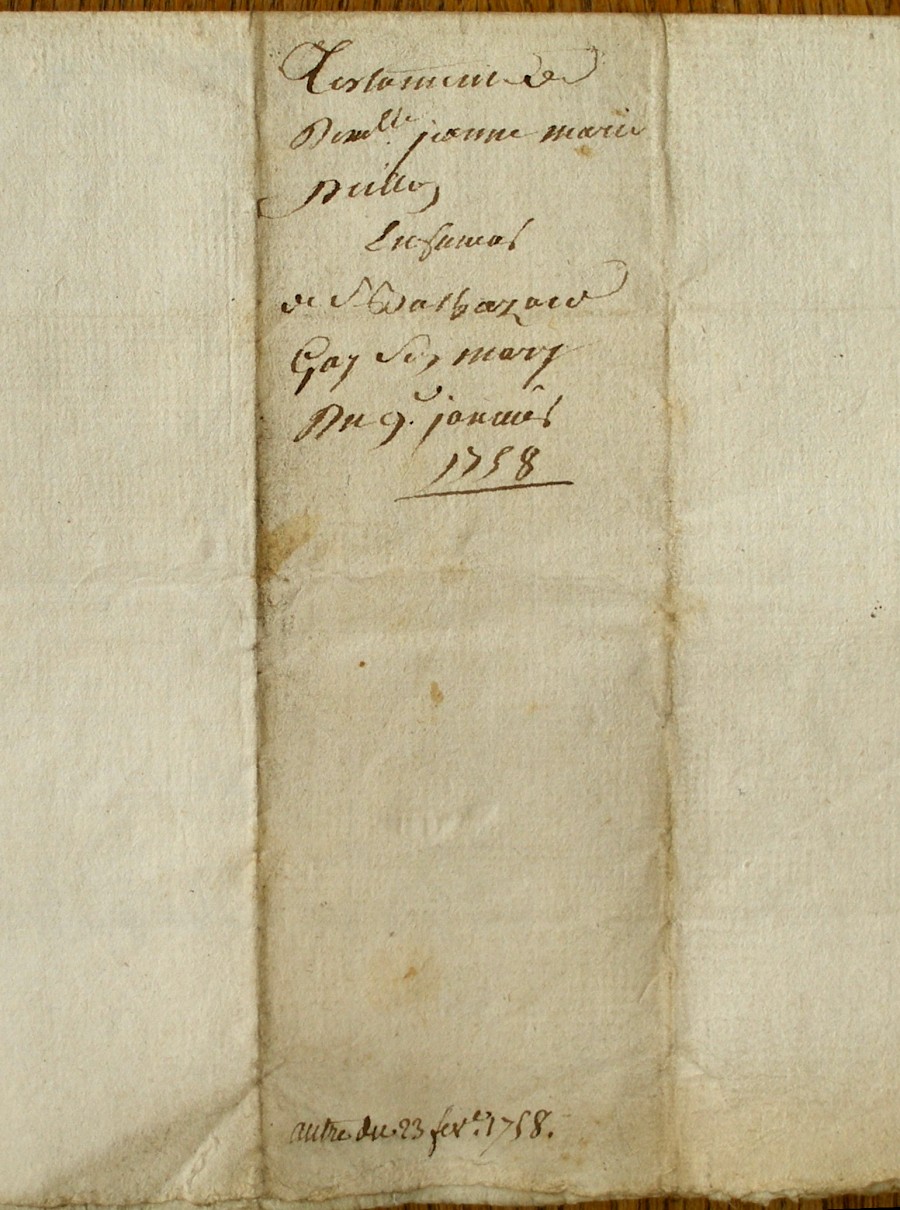 Testament de
Demlle. jeanne marie
Deille
En faveur
de Sr Balthazard
Gay son mary
Du 9e. janvier
1758
autre du 23 fevr. 1758.